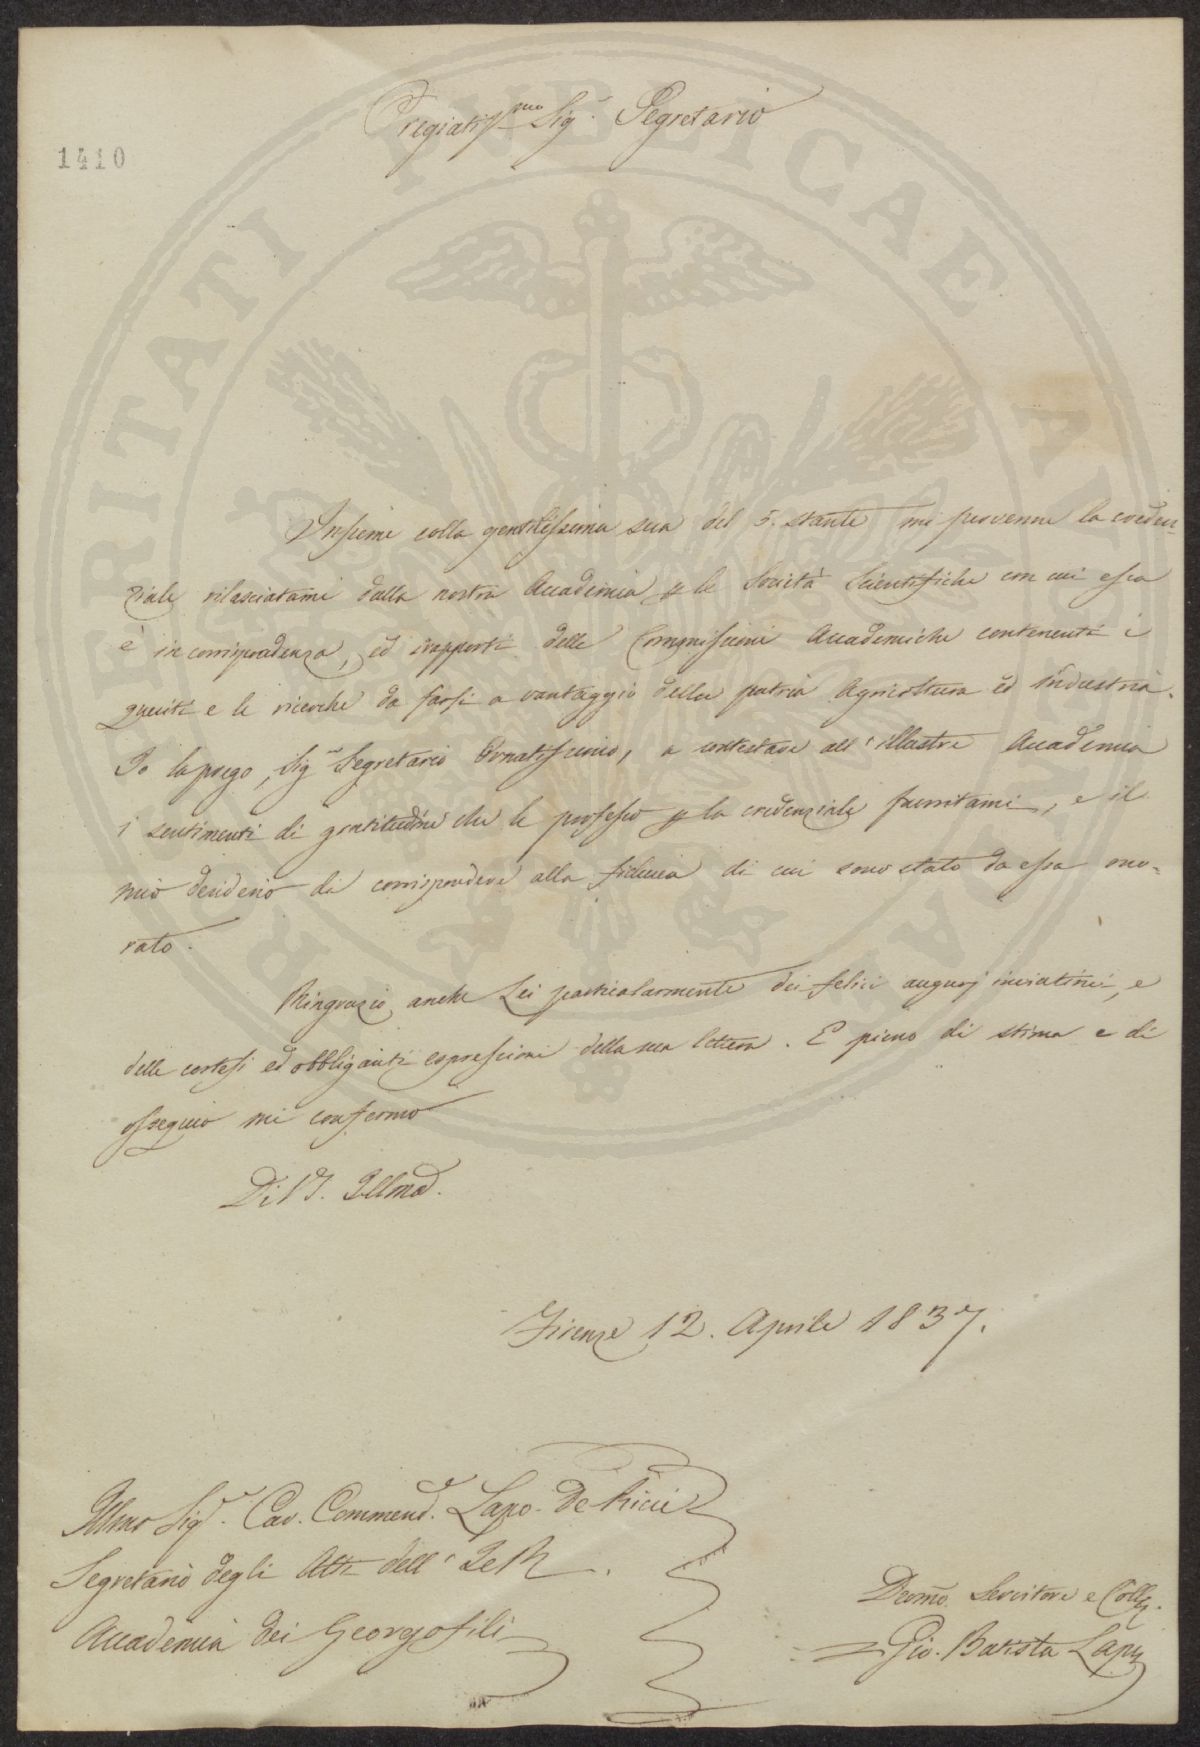 Pregiatiss.mo Sig.r Segretario
1410
Insieme colla gentilissima sua del 5. stante mi pervenne la creden-
ziale rilasciatami dalla nostra Accademia p le Società Scientifiche con cui essa
è in corrispondenza, ed i rapporti delle Commissioni Accademiche contenenti i
quesiti e le ricerche da farsi a vantaggio della patria Agricoltura ed Industria.
Io la prego, Sig.r Segretario Ornatissimo, a contestare all'illustre Accademia
i sentimenti di gratitudine che le professo p la credenziale fornitami, e il
mio desiderio di corrispondere alla fiducia di cui sono stato da essa ono-
rato.
Ringrazio anche Lei particolarmente dei felici augurj inviatimi, e
delle cortesi ed obbliganti espressioni della sua lettera. E pieno di stima e di
ossequio mi confermo
Di V. S. Illma.
Firenze 12. Aprile 1837.
Illmo Sig.r Cav. Commend.e Lapo de Ricci
Segretario degli Atti dell' I e R.
Accademia dei Georgofili
Devmo. Servitore e Colla.
Gio. Batista Lapi
PROSPERITATI PUBLICAE AUGENDAE